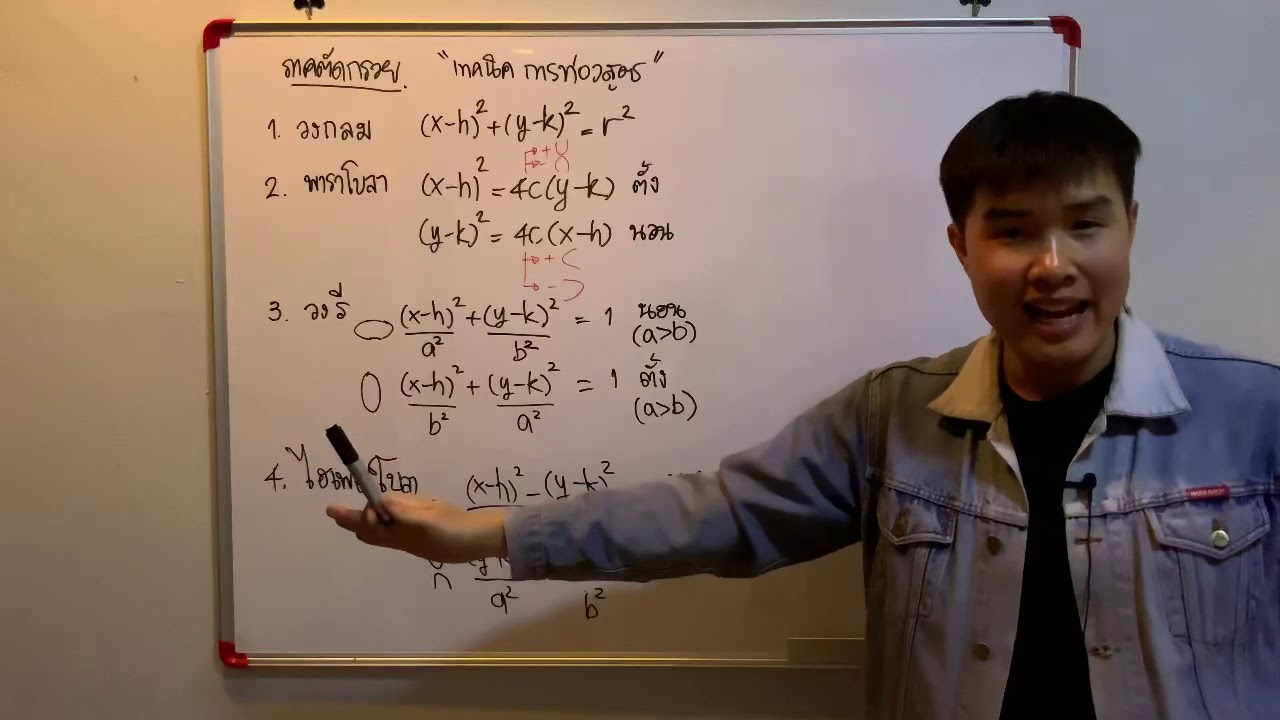 ภาคตัดกรวย. "เทคนิค การท่องสูตร"
1. วงกลม (x-h)²+(y-k)² = r²
+
-
2. พาราโบลา (x-h)² = 4c(y-k) ตั้ง
(y-k)² = 4c(x-h) นอน
+
-
3. วงรี (x-h)²/a² + (y-k)²/b² = 1 นอน (a>b)
(x-h)²/b² + (y-k)²/a² = 1 ตั้ง (a>b)
4. (x-h)² - (y-k)²
a² b²